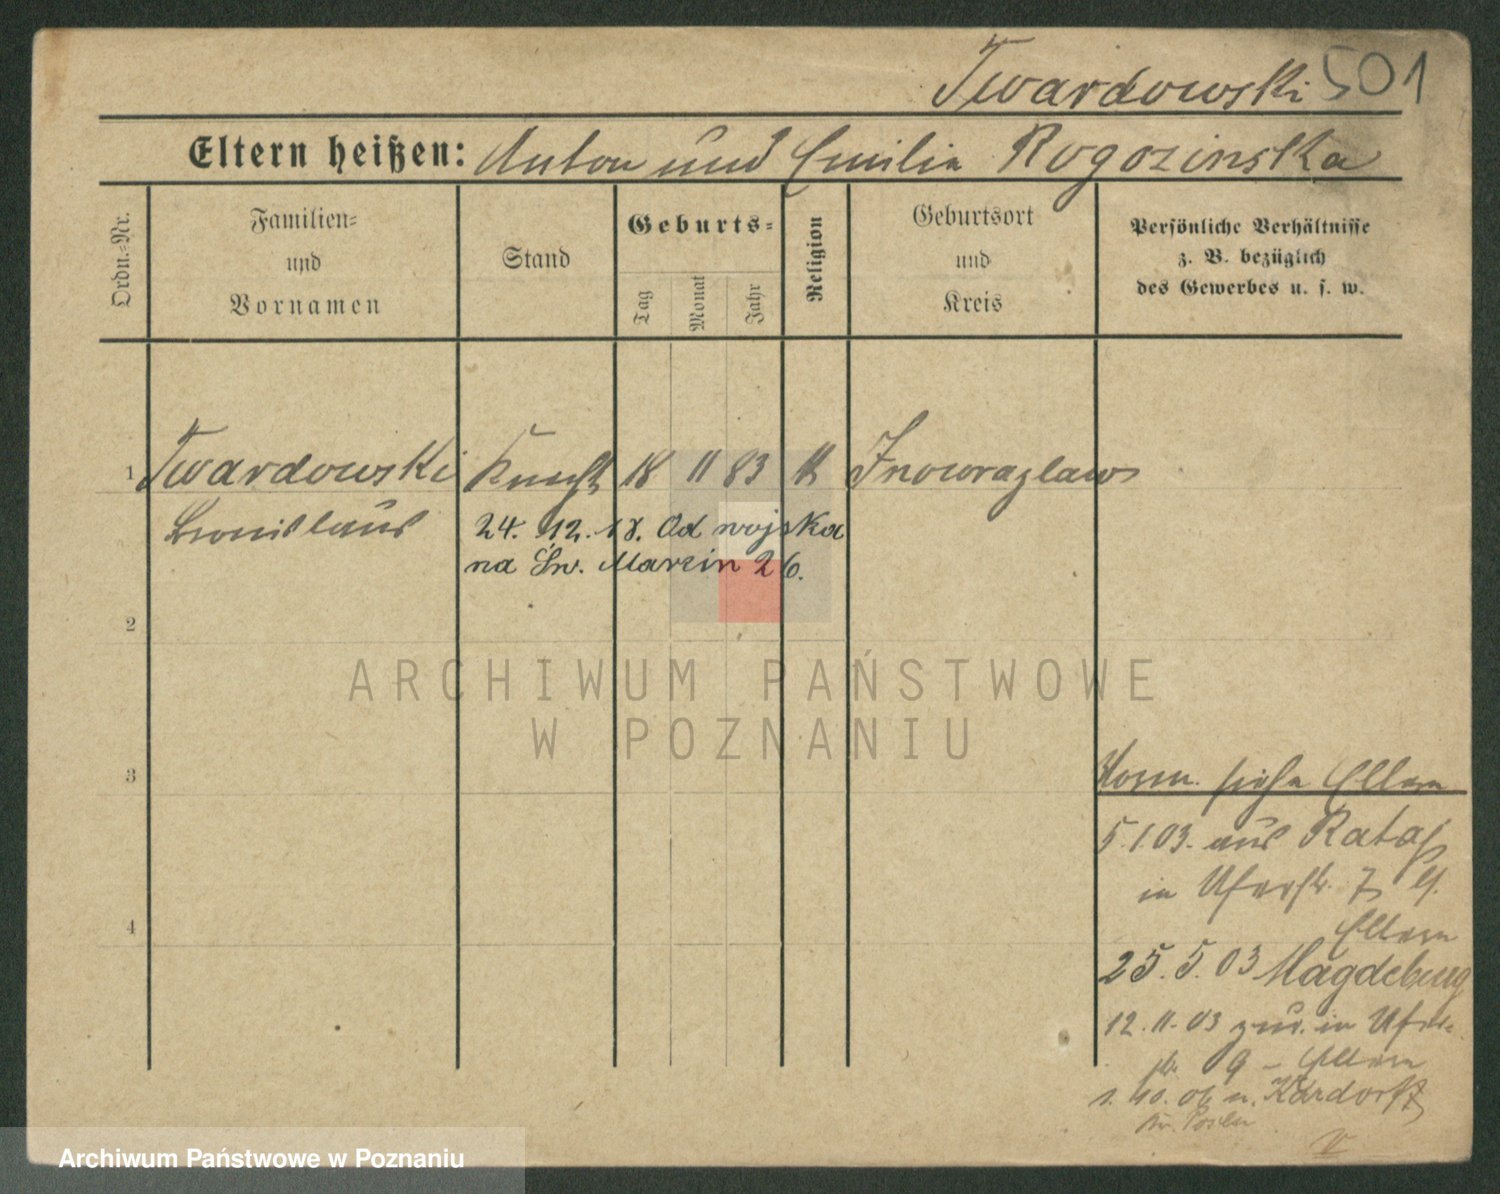 Twardowski 501
Eltern heißen: Anton und Emilia Rogozinska
Ordn.-Nr.
Familien-
und
Vornamen
Stand
Geburts-
Tag
Monat
Jahr
Religion
Geburtsort
und
Kreis
Persönliche Verhältnisse
z. B. bezüglich
des Gewerbes u. s. w.
1 Twardowski Knecht 18 11 83 k Inowrazlaw
Bronislaus
24. 12. 18. Od wojska
na Św. Marcin 26.
2
3
4
ARCHIWUM PAŃSTWOWE
W POZNANIU
Vorm. siehe Eltern
5.1.03. aus Rataj
in Uferstr. 7
Eltern
25. 5. 03 Magdeburg
12. 11. 03 zur. in Ufer-
str. 9 - Eltern
1. 10. 06 n. Kardorff
Kr. Posen
Archiwum Państwowe w Poznaniu